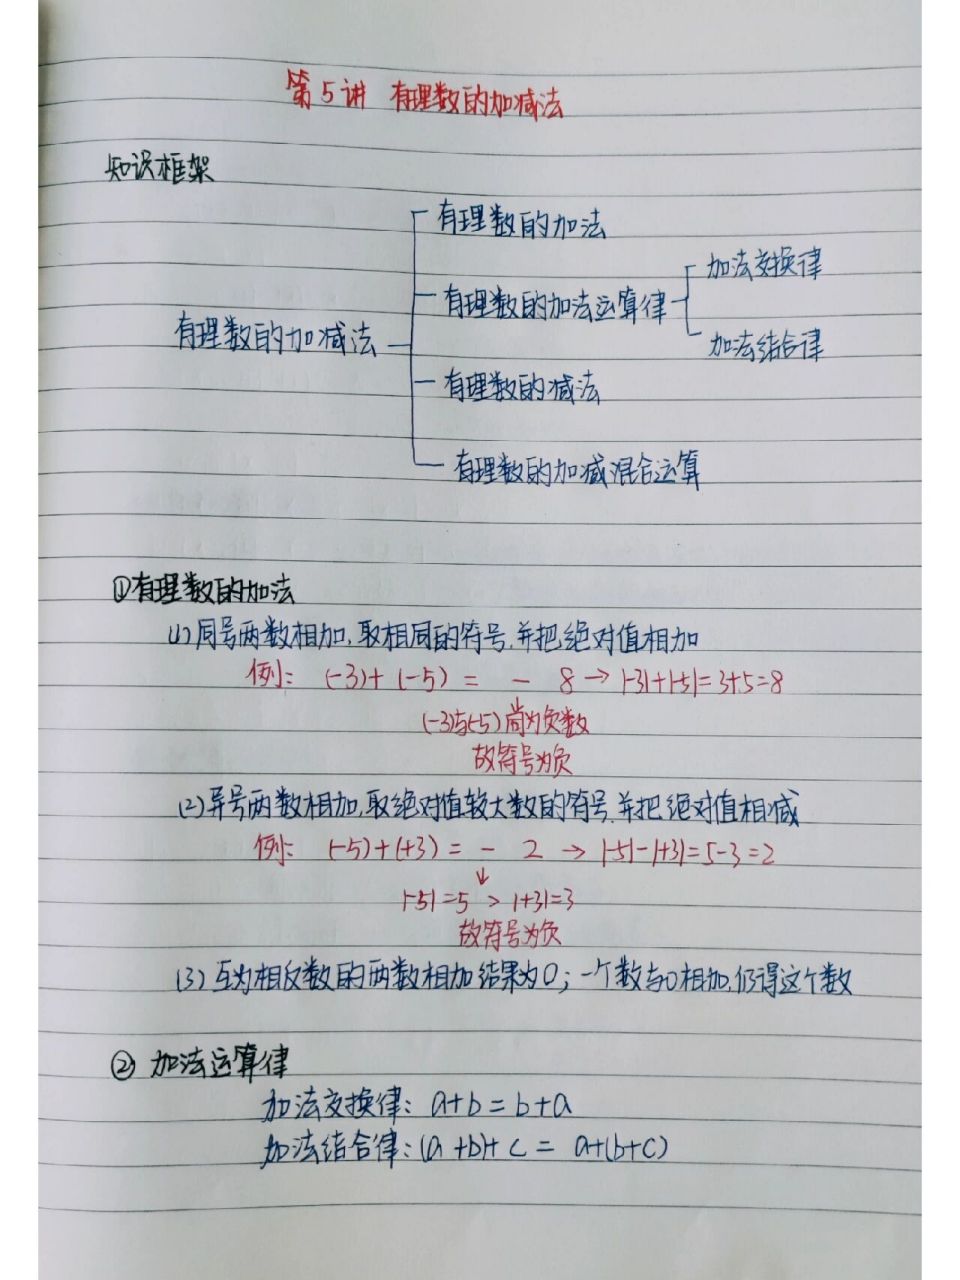 第5讲 有理数的加减法
知识框架
有理数的加法
加法交换律
有理数的加法运算律
有理数的加减法
加法结合律
有理数的减法
有理数的加减混合运算
①有理数的加法
(1)同号两数相加,取相同的符号,并把绝对值相加
例: (-3)+(-5) = - 8 → |-3|+|-5|=3+5=8
(-3)与(-5)尚为负数
故符号为负
(2)异号两数相加,取绝对值较大数的符号,并把绝对值相减
例: (-5)+(+3) = - 2 → |-5|-|+3|=5-3=2
↓
|-5|=5 > |+3|=3
故符号为负
(3)互为相反数的两数相加结果为0; 一个数与0相加,仍得这个数
② 加法运算律
加法交换律: a+b=b+a
加法结合律:(a+b)+c = a+(b+c)